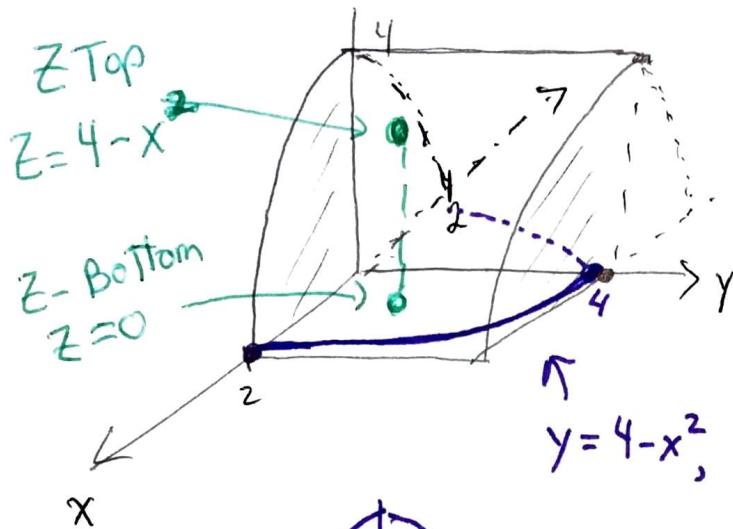 4
Z Top
Z = 4 - x²
2
Z - Bottom
Z = 0
Y
4
2
y = 4 - x²,
X